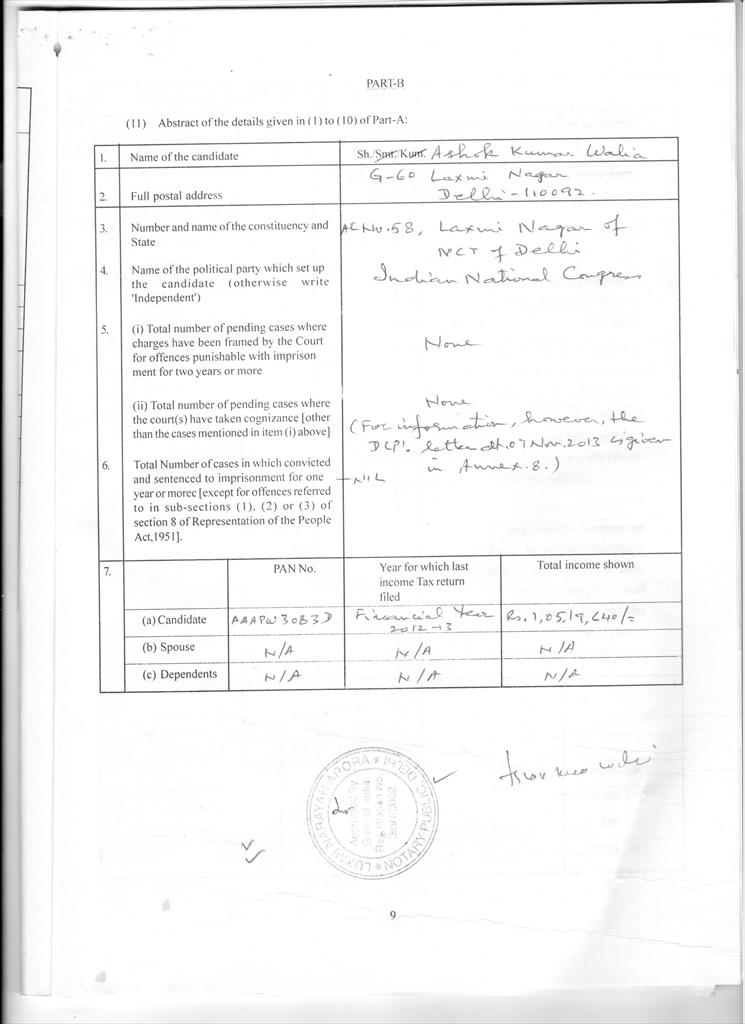 PART-B
(11) Abstract of the details given in (1) to (10) of Part-A:
1. Name of the candidate Sh./Smt./Kum. Ashok Kumar Walia
2. Full postal address G-60 Laxmi Nagar
Delhi-110092.
3. Number and name of the constituency and State AC No.58, Laxmi Nagar of
NCT of Delhi
4. Name of the political party which set up Indian National Congress
the candidate (otherwise write
'Independent')
5. (i) Total number of pending cases where
charges have been framed by the Court None
for offences punishable with imprison
ment for two years or more
(ii) Total number of pending cases where None
the court(s) have taken cognizance [other (For information, however, the
than the cases mentioned in item (i) above] DCP's letter dt. 07 Nov. 2013 is given
in Annex. 8.)
6. Total Number of cases in which convicted
and sentenced to imprisonment for one NIL
year or morec [except for offences referred
to in sub-sections (1), (2) or (3) of
section 8 of Representation of the People
Act,1951].
7. PAN No. Year for which last Total income shown
income Tax return
filed
(a) Candidate AAAPW3083D Financial Year Rs. 1,05,19,640/=
2012-13
(b) Spouse N/A N/A N/A
(c) Dependents N/A N/A N/A
LUXMI NARAYAN ARORA * NOTARY PUBLIC, DELHI *
Approved By
Govt. of India
Registration No.
9